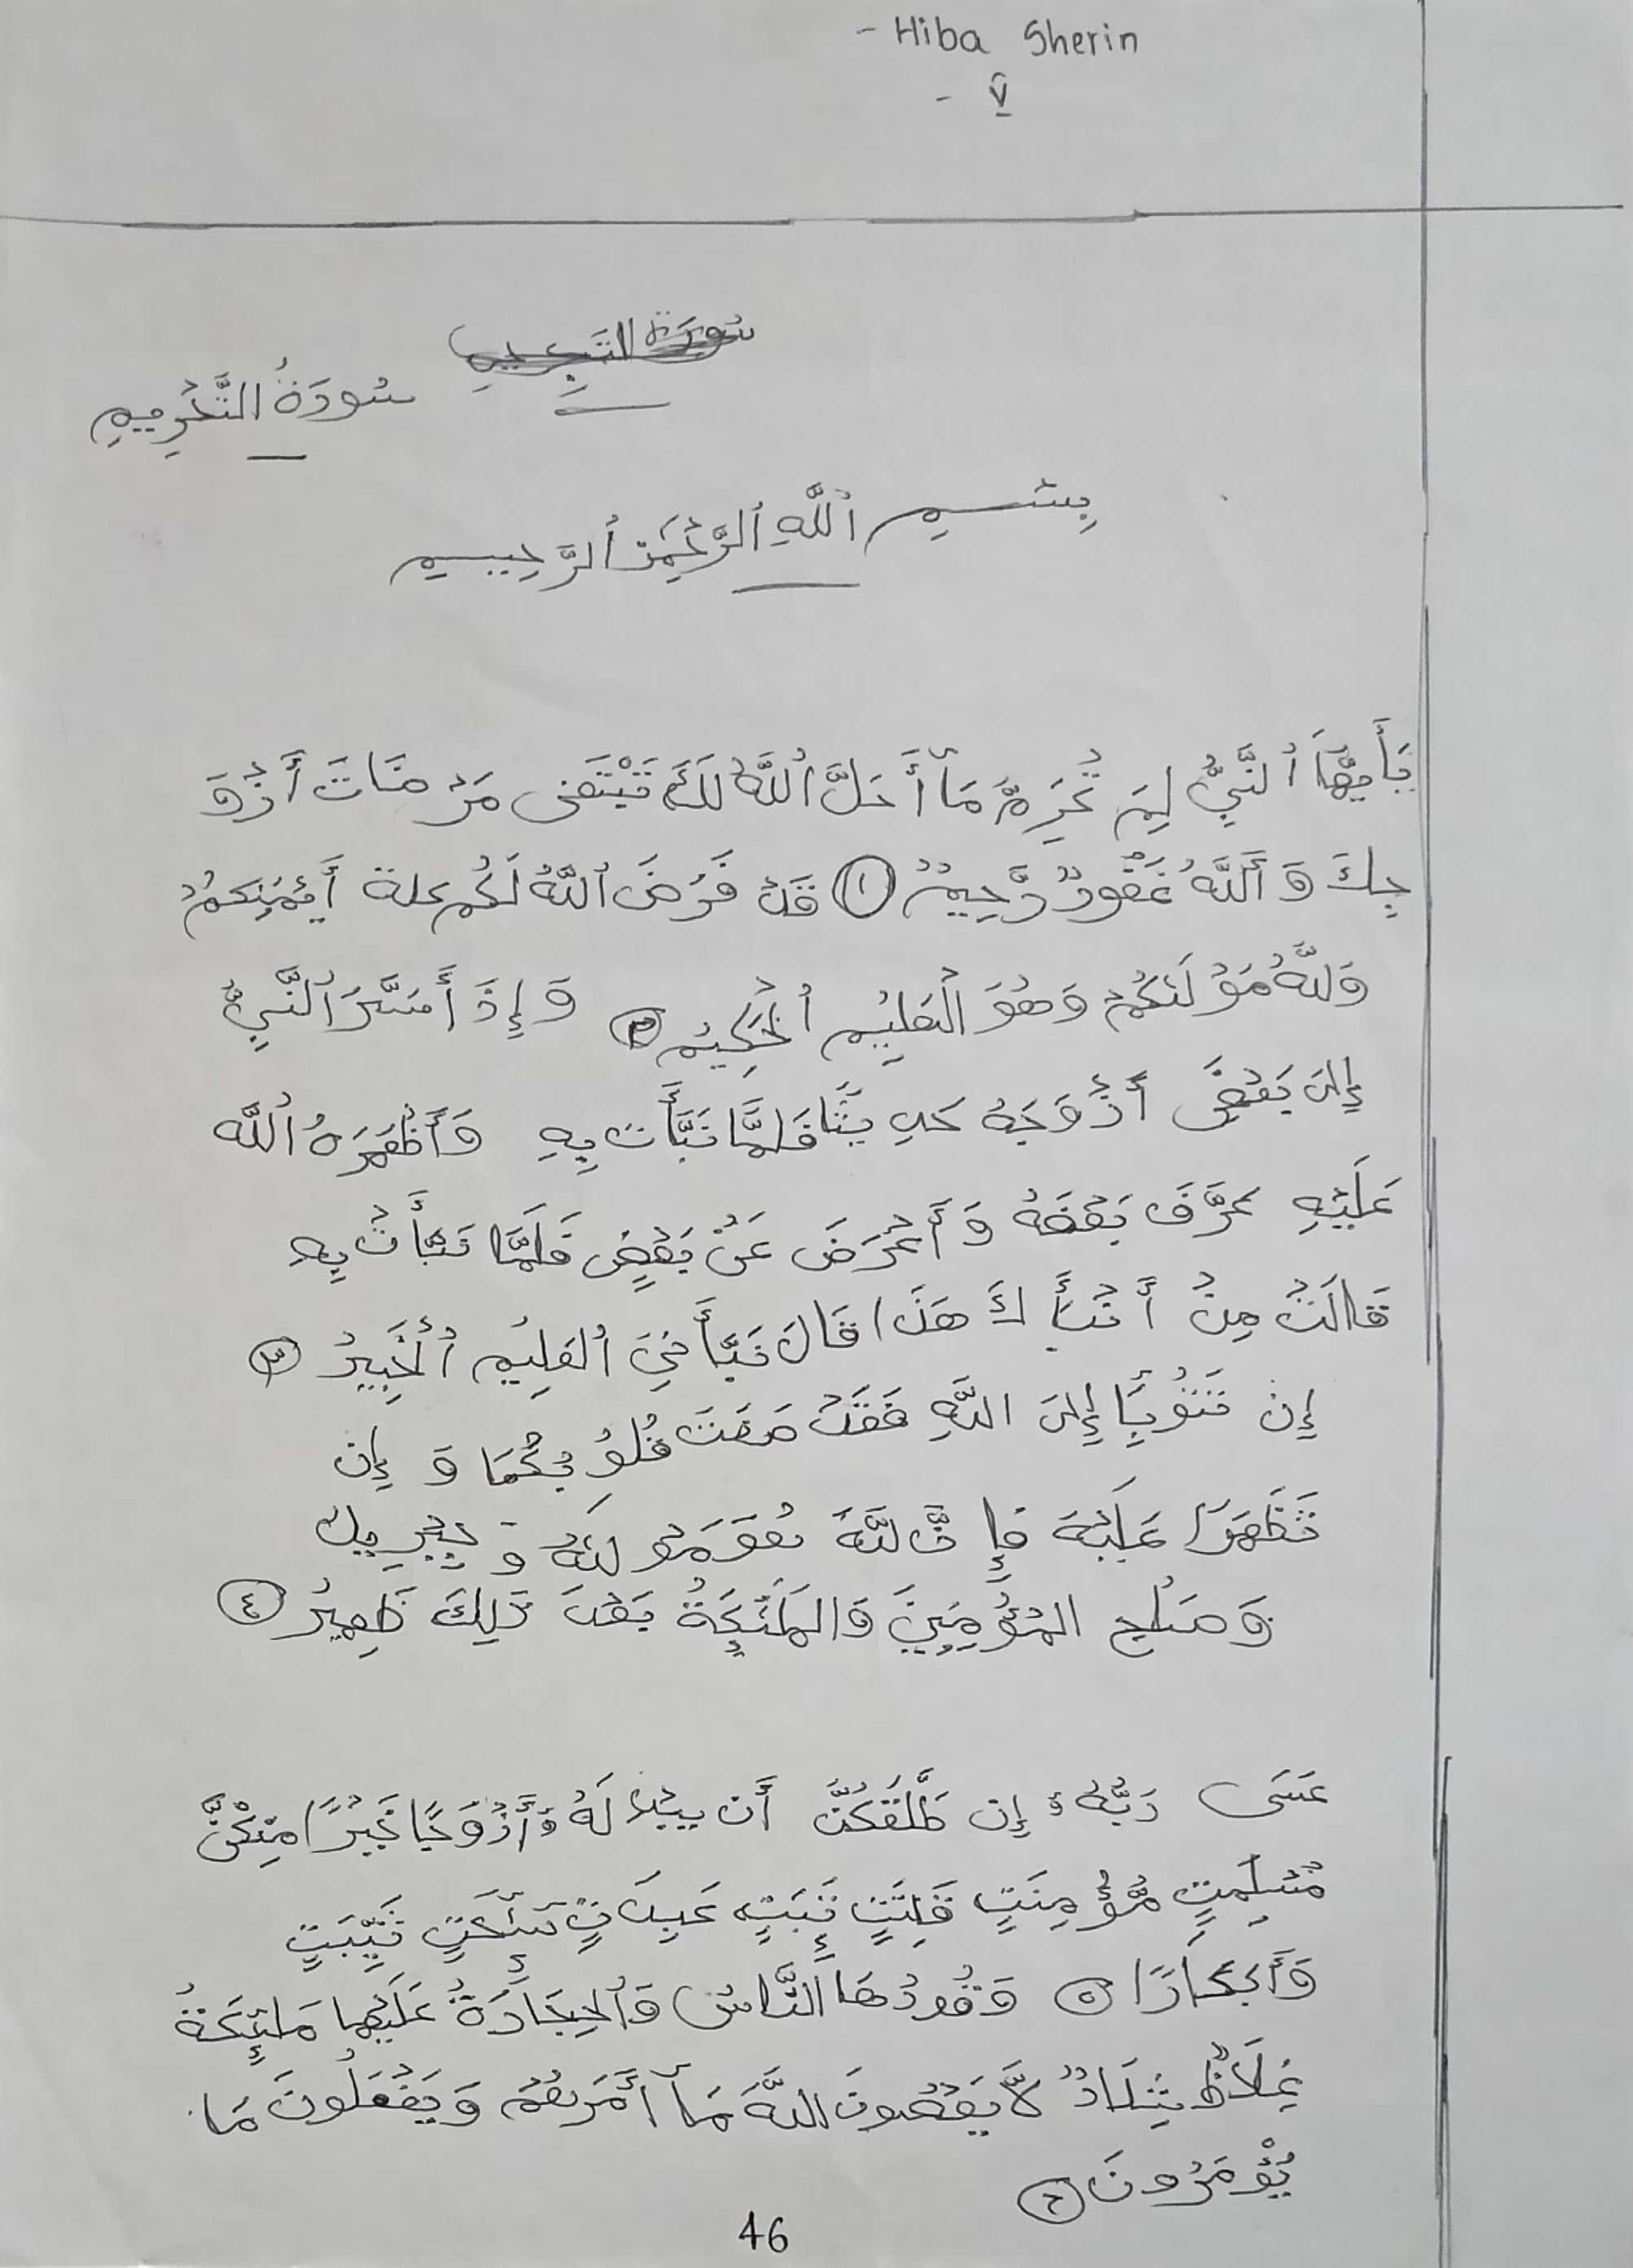 - Hiba Sherin
- V
سُورَة التَّحِريمِ
سُورَةُ التَّحْرِيمِ
بِسْمِ ٱللَّهِ ٱلرَّحْمَٰنِ ٱلرَّحِيمِ
يَأَيُّهَا ٱلنَّبِيُّ لِمَ تُحَرِّمُ مَآ أَحَلَّ ٱللَّهُ لَكَ تَبْتَغِى مَرْضَاتَ أَزْوَ
جِكَ وَ ٱللَّهُ غَفُورٌ رَّحِيمٌ ١ قَدْ فَرَضَ ٱللَّهُ لَكُم علة أَيْمَنِكُمْ
وَللَّهُ مَوْلَىٰكُمْ وَهُوَ الْعَلِيُم ٱلْحَكِيمُ ٢ وَ إِذَ أَسَرَّ ٱلنَّبِيُّ
إِلَىٰ بَعْضَ أَزْوَجَهُ حَدِيثًا فَلَمَّا نَبَّأَت بِهِ وَأَظْهَرَهُ ٱللَّه
عَلَيْهِ عَرَّفَ بَعْضَهُ وَ أَعْرَضَ عَنْ بَعْضٍ فَلَمَّا نَبَّأَتْ بِهِ
قَالَتْ مِنْ أَنْبَأَ كَ هَذَا قَالَ نَبَّأَنِيَ ٱلْعَلِيُم ٱلْخَبِيرُ ٣
إِن تَتُوْبَا إِلَىٰ اللَّهِ فَقَدْ صَغَتَ قُلُو بُكُمَا وَ إِن
تَظَهَرَا عَلَيْهَ فَإِ نَّ للَّهَ هُوَ مَوْ لَىٰهُ وَ جِبْرِيل
وَ صَلُح المُؤْمِنِينَ وَالمَلَئِكَةُ بَعْدَ ذَلِكَ ظَهِيرُ ٤
عَسَى رَبُّهُۥ إِن طَلَّقَكُنَّ أَن يبْدِ لَهُۥ أَزْوَجًا خَيْرًا مِنْكُنَّ
مُسْلِمَتٍ مُّؤْمِنَتٍ قَنِتَتٍ تَئِبَتٍ عَبِدَ تٍ سَٓئِحَتٍ ثَيِّبَتٍ
وَأَبكَارًا ٥ وَقُودُهَا النَّاسُ وَٱلْحِجَارَةُ عَلَيْهَا مَلَئِكَةُ
غِلَاظٌ شِدَادٌ لَّا يَعْصُونَ اللَّهَ مَآ أَمَرَهُمْ وَ يَفْعَلُونَ مَا
يُؤْمَرُونَ ٦
46